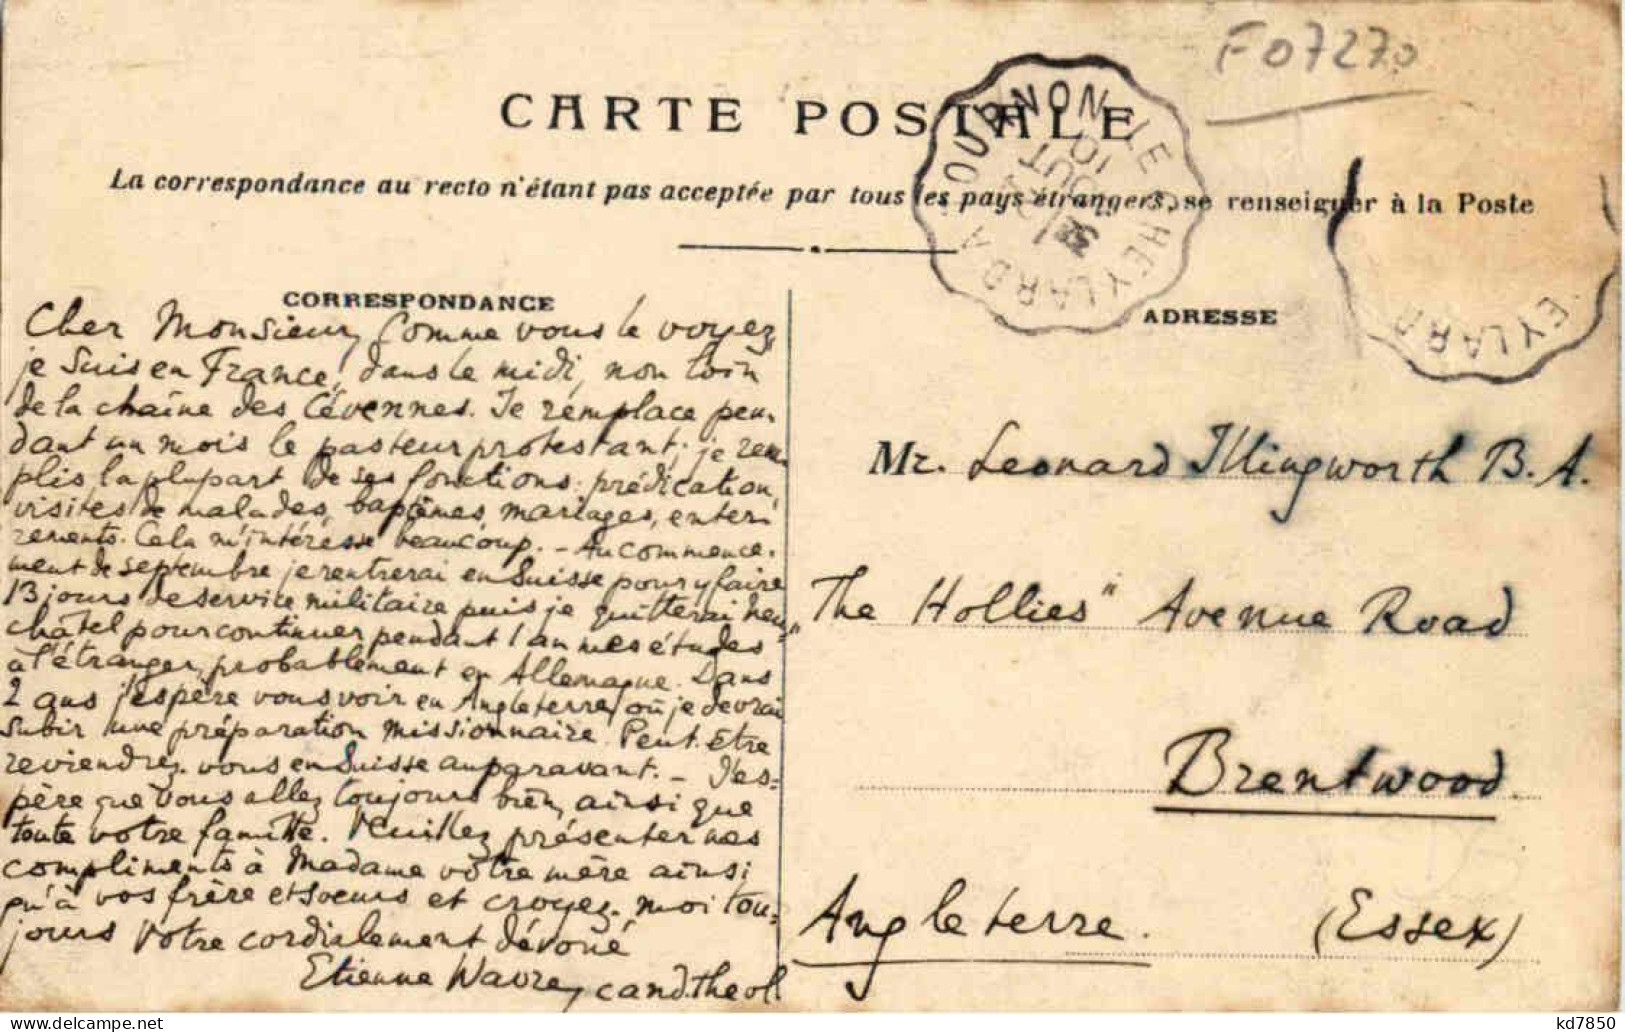 F07270
CARTE POSTALE
La correspondance au recto n'étant pas acceptée par tous les pays étrangers, se renseigner à la Poste
LE CHEYLARD A
OUT
10
EYLARD
CORRESPONDANCE
Cher Monsieur, Comme vous le voyez,
je suis en France, dans le midi, non loin
de la chaîne des Cévennes. Je remplace pen-
dant un mois le pasteur protestant; je rem
plis la plupart de ses fonctions: prédication,
visites de malades, baptêmes, mariages, enter-
rements. Cela m'intéresse beaucoup. - Au commence-
ment de septembre je rentrerai en Suisse pour y faire
13 jours de service militaire puis je quitterai Neu-
châtel pour continuer pendant 1 an mes études
à l'étranger, probablement en Allemagne. Dans
2 ans j'espère vous voir en Angleterre, où je devrai
subir une préparation missionnaire. Peut-être
reviendrez-vous en Suisse auparavant. - J'es-
père que vous allez toujours bien, ainsi que
toute votre famille. Veuillez présenter mes
compliments à Madame votre mère ainsi
qu'à vos frère et soeurs et croyez-moi tou-
jours Votre cordialement dévoué
Etienne Wavre, cand. theol
ADRESSE
Mr. Leonard Illingworth B. A.
"The Hollies" Avenue Road
Brentwood
Angleterre. (Essex)
kd7850